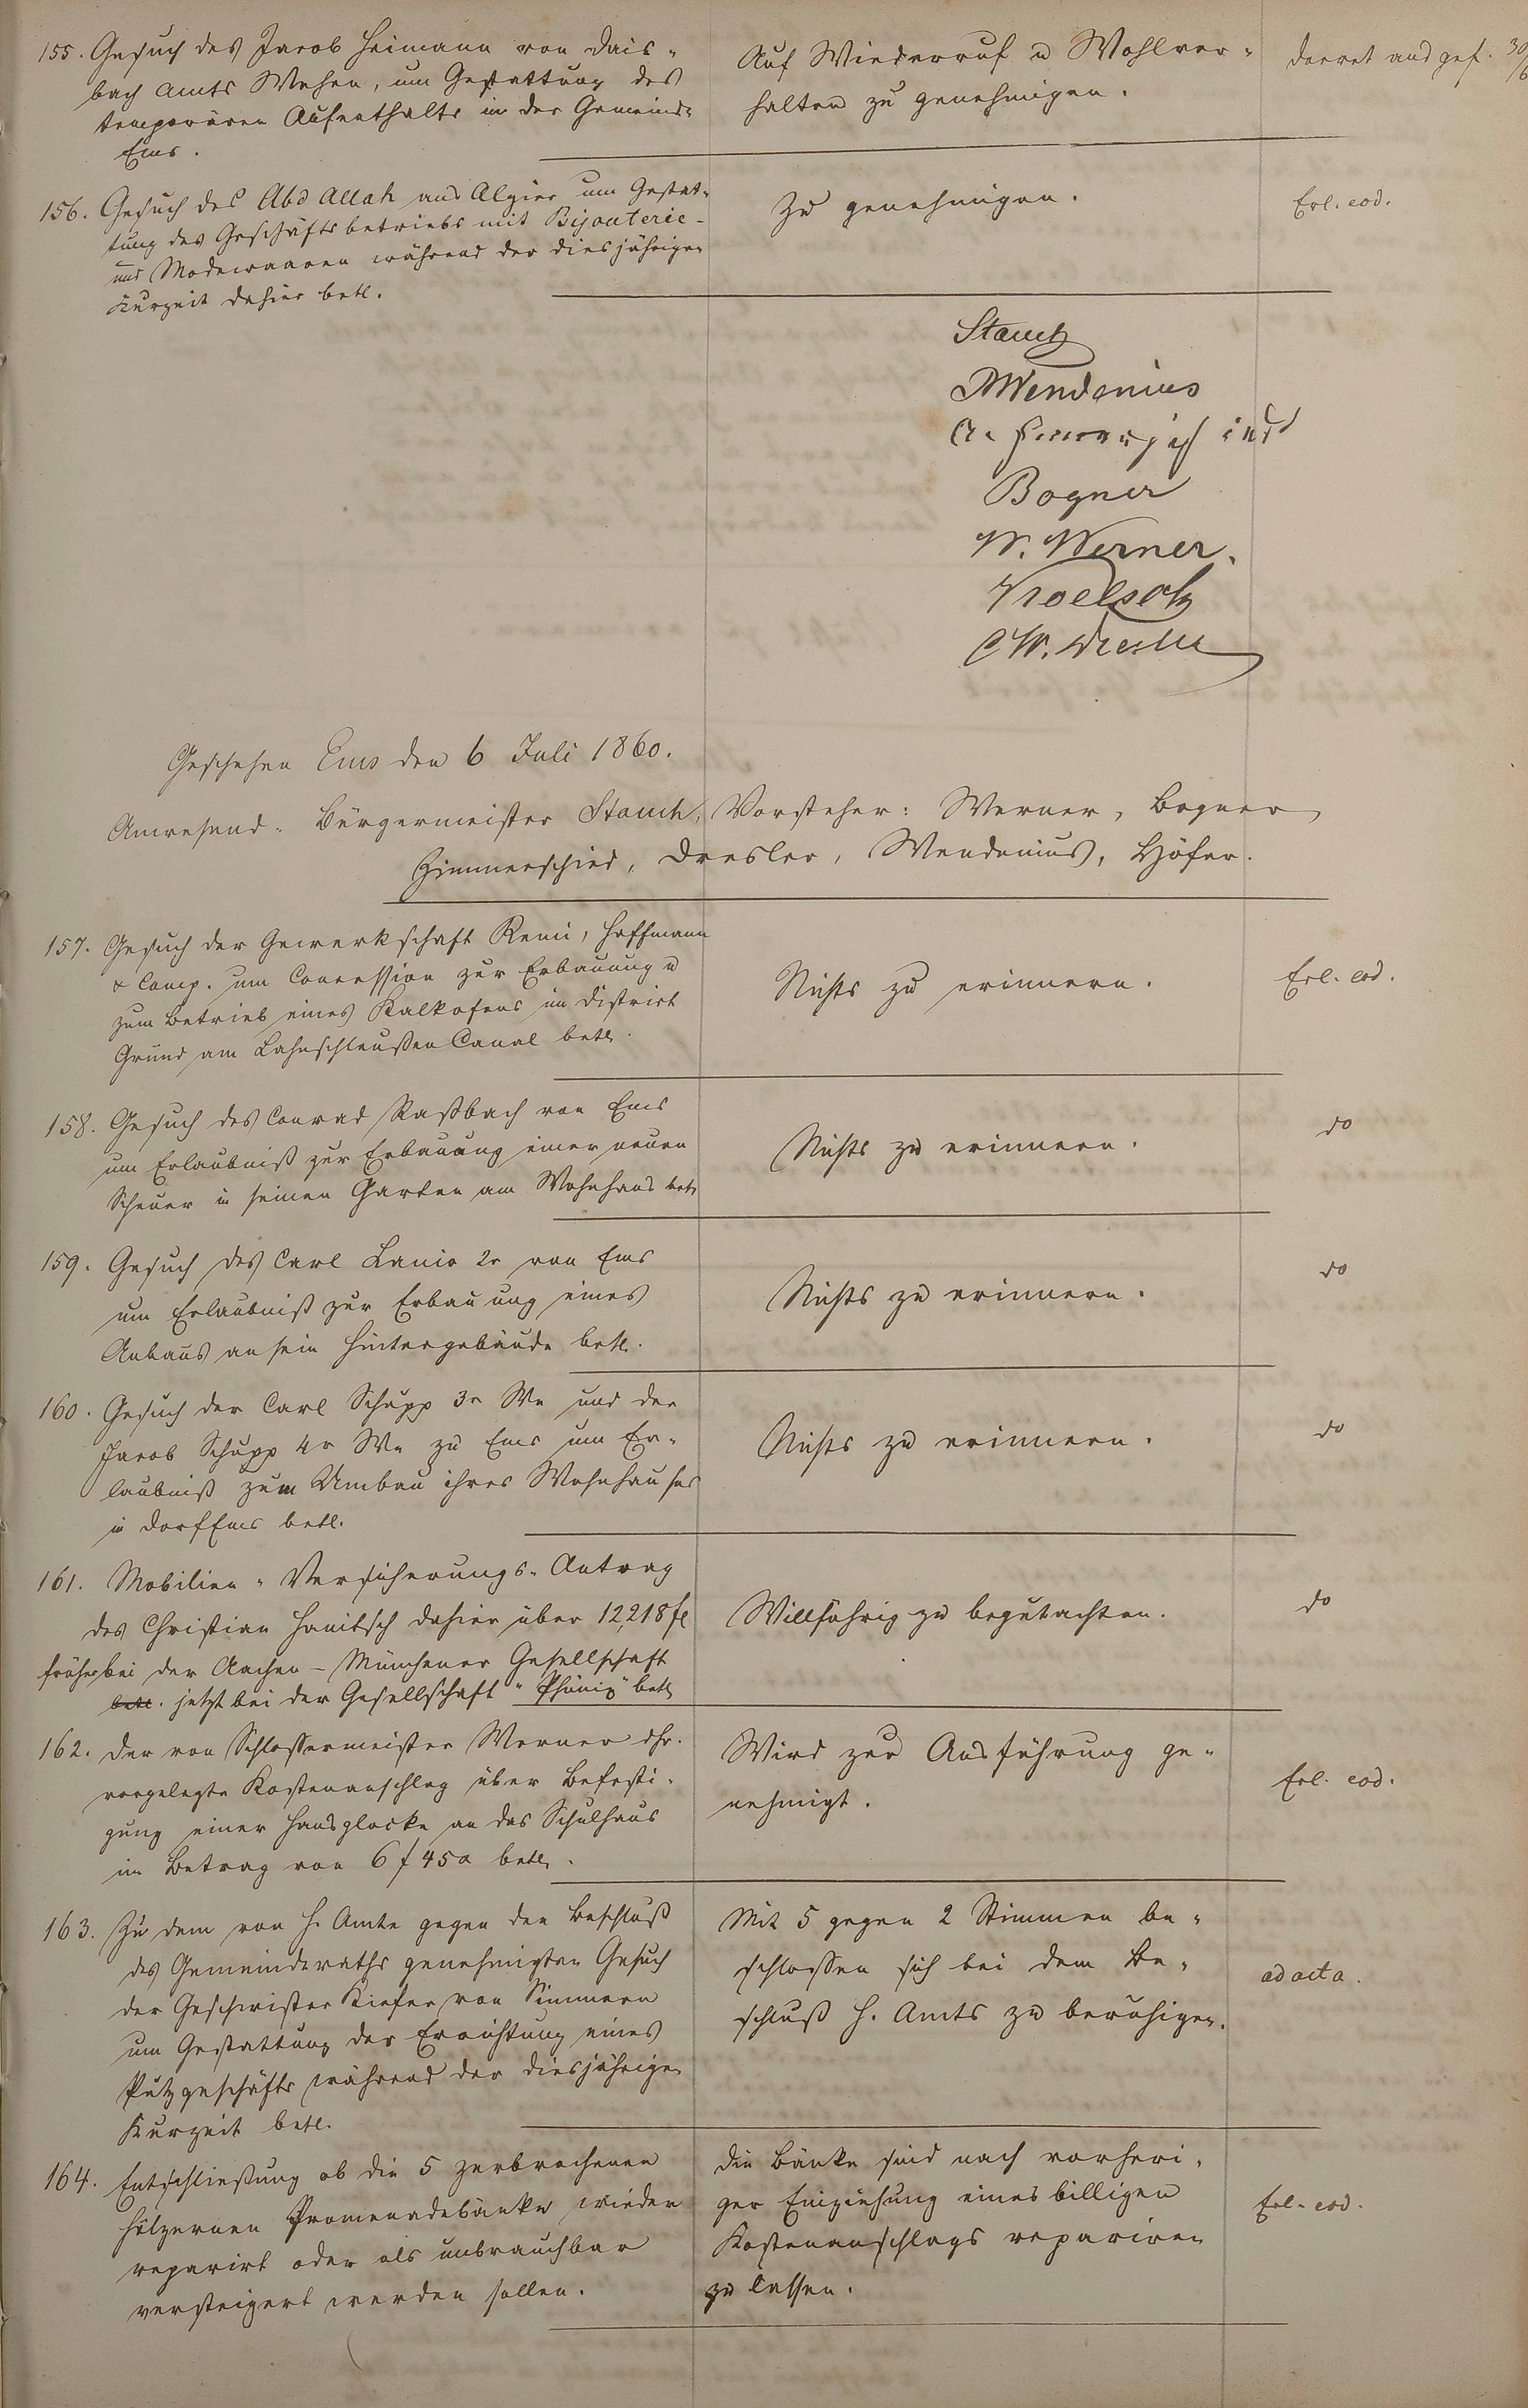 155. Gesuch des Jacob Heimann von Dais-
bach Amts Wehen, um Gestattung des
temporären Aufenthalts in der Gemeinde
Ems.
Auf Wiederruf u Wohlver-
halten zu genehmigen.
Decret ausgef. 30/6
156. Gesuch des Abd Allah aus Algier um Gestat-
tung des Geschäftsbetriebs mit Bijouterie-
und Modewaaren während der diesjährigen
Kurzeit dahier betl.
Zu genehmigen.
Erl. eod.
Stauch
Wendenius
Bogner
W. Werner.
C W. Dresler
Geschehen Ems den 6 Juli 1860.
Anwesend: Bürgermeister Stauch, Vorsteher: Werner, Bogner,
Zimmerschied, Dresler, Wendenius, Höfer.
157. Gesuch der Gewerkschaft Remi, Hoffmann
& Comp. um Concession zur Erbauung u
zum Betrieb eines Kalkofens im District
Grund am Lahnschleußen Canal betl.
Nichts zu erinnern.
Erl. eod.
158. Gesuch des Conrad Raßbach von Ems
um Erlaubniß zur Erbauung einer neuen
Scheuer in seinen Garten am Wohnhaus betl
Nichts zu erinnern.
do
159. Gesuch des Carl Lanio 2r von Ems
um Erlaubniß zur Erbauung eines
Anbaus an sein Hintergebäude betl.
Nichts zu erinnern.
do
160. Gesuch der Carl Schupp 3r We und der
Jacob Schupp 4r We zu Ems um Er-
laubniß zum Umbau ihres Wohnhauses
in Dorf Ems betl.
Nichts zu erinnern.
do
161. Mobilien-Versicherungs-Antrag
des Christian Hanitsch dahier über 12,218 fl
früher bei der Aachen-Münchener Gesellschaft
betl. jetzt bei der Gesellschaft "Phönix" betl
Willfährig zu begutachten.
do
162. Der von Schlossermeister Werner dhr.
vorgelegte Kostenanschlag über Befesti-
gung einer Hausglocke an das Schulhaus
im Betrag von 6 f 45 x betl.
Wird zur Ausführung ge-
nehmigt.
Erl. eod.
163. Zu dem von H. Amte gegen den Beschluß
des Gemeinderaths genehmigten Gesuch
der Geschwister Kiefer von Simmern
um Gestattung der Errichtung eines
Putzgeschäfts während der diesjährigen
Kurzeit betl.
Mit 5 gegen 2 Stimmen be-
schlossen sich bei dem Be-
schluß H. Amts zu beruhigen.
ad acta.
164. Entschließung ob die 5 zerbrochenen
hölzernen Promenadebänke wieder
reparirt oder als unbrauchbar
versteigert werden sollen.
Die Bänke sind nach vorheri-
ger Einziehung eines billigen
Kostenanschlags repariren
zu lassen.
Erl. eod.